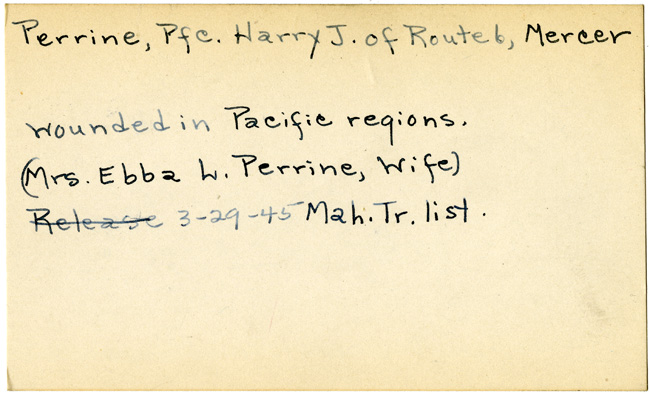 Perrine, Pfc. Harry J. of Route 6, Mercer
wounded in Pacific regions.
(Mrs. Ebba L. Perrine, Wife)
Release 3-29-45 Mah. Tr. list.